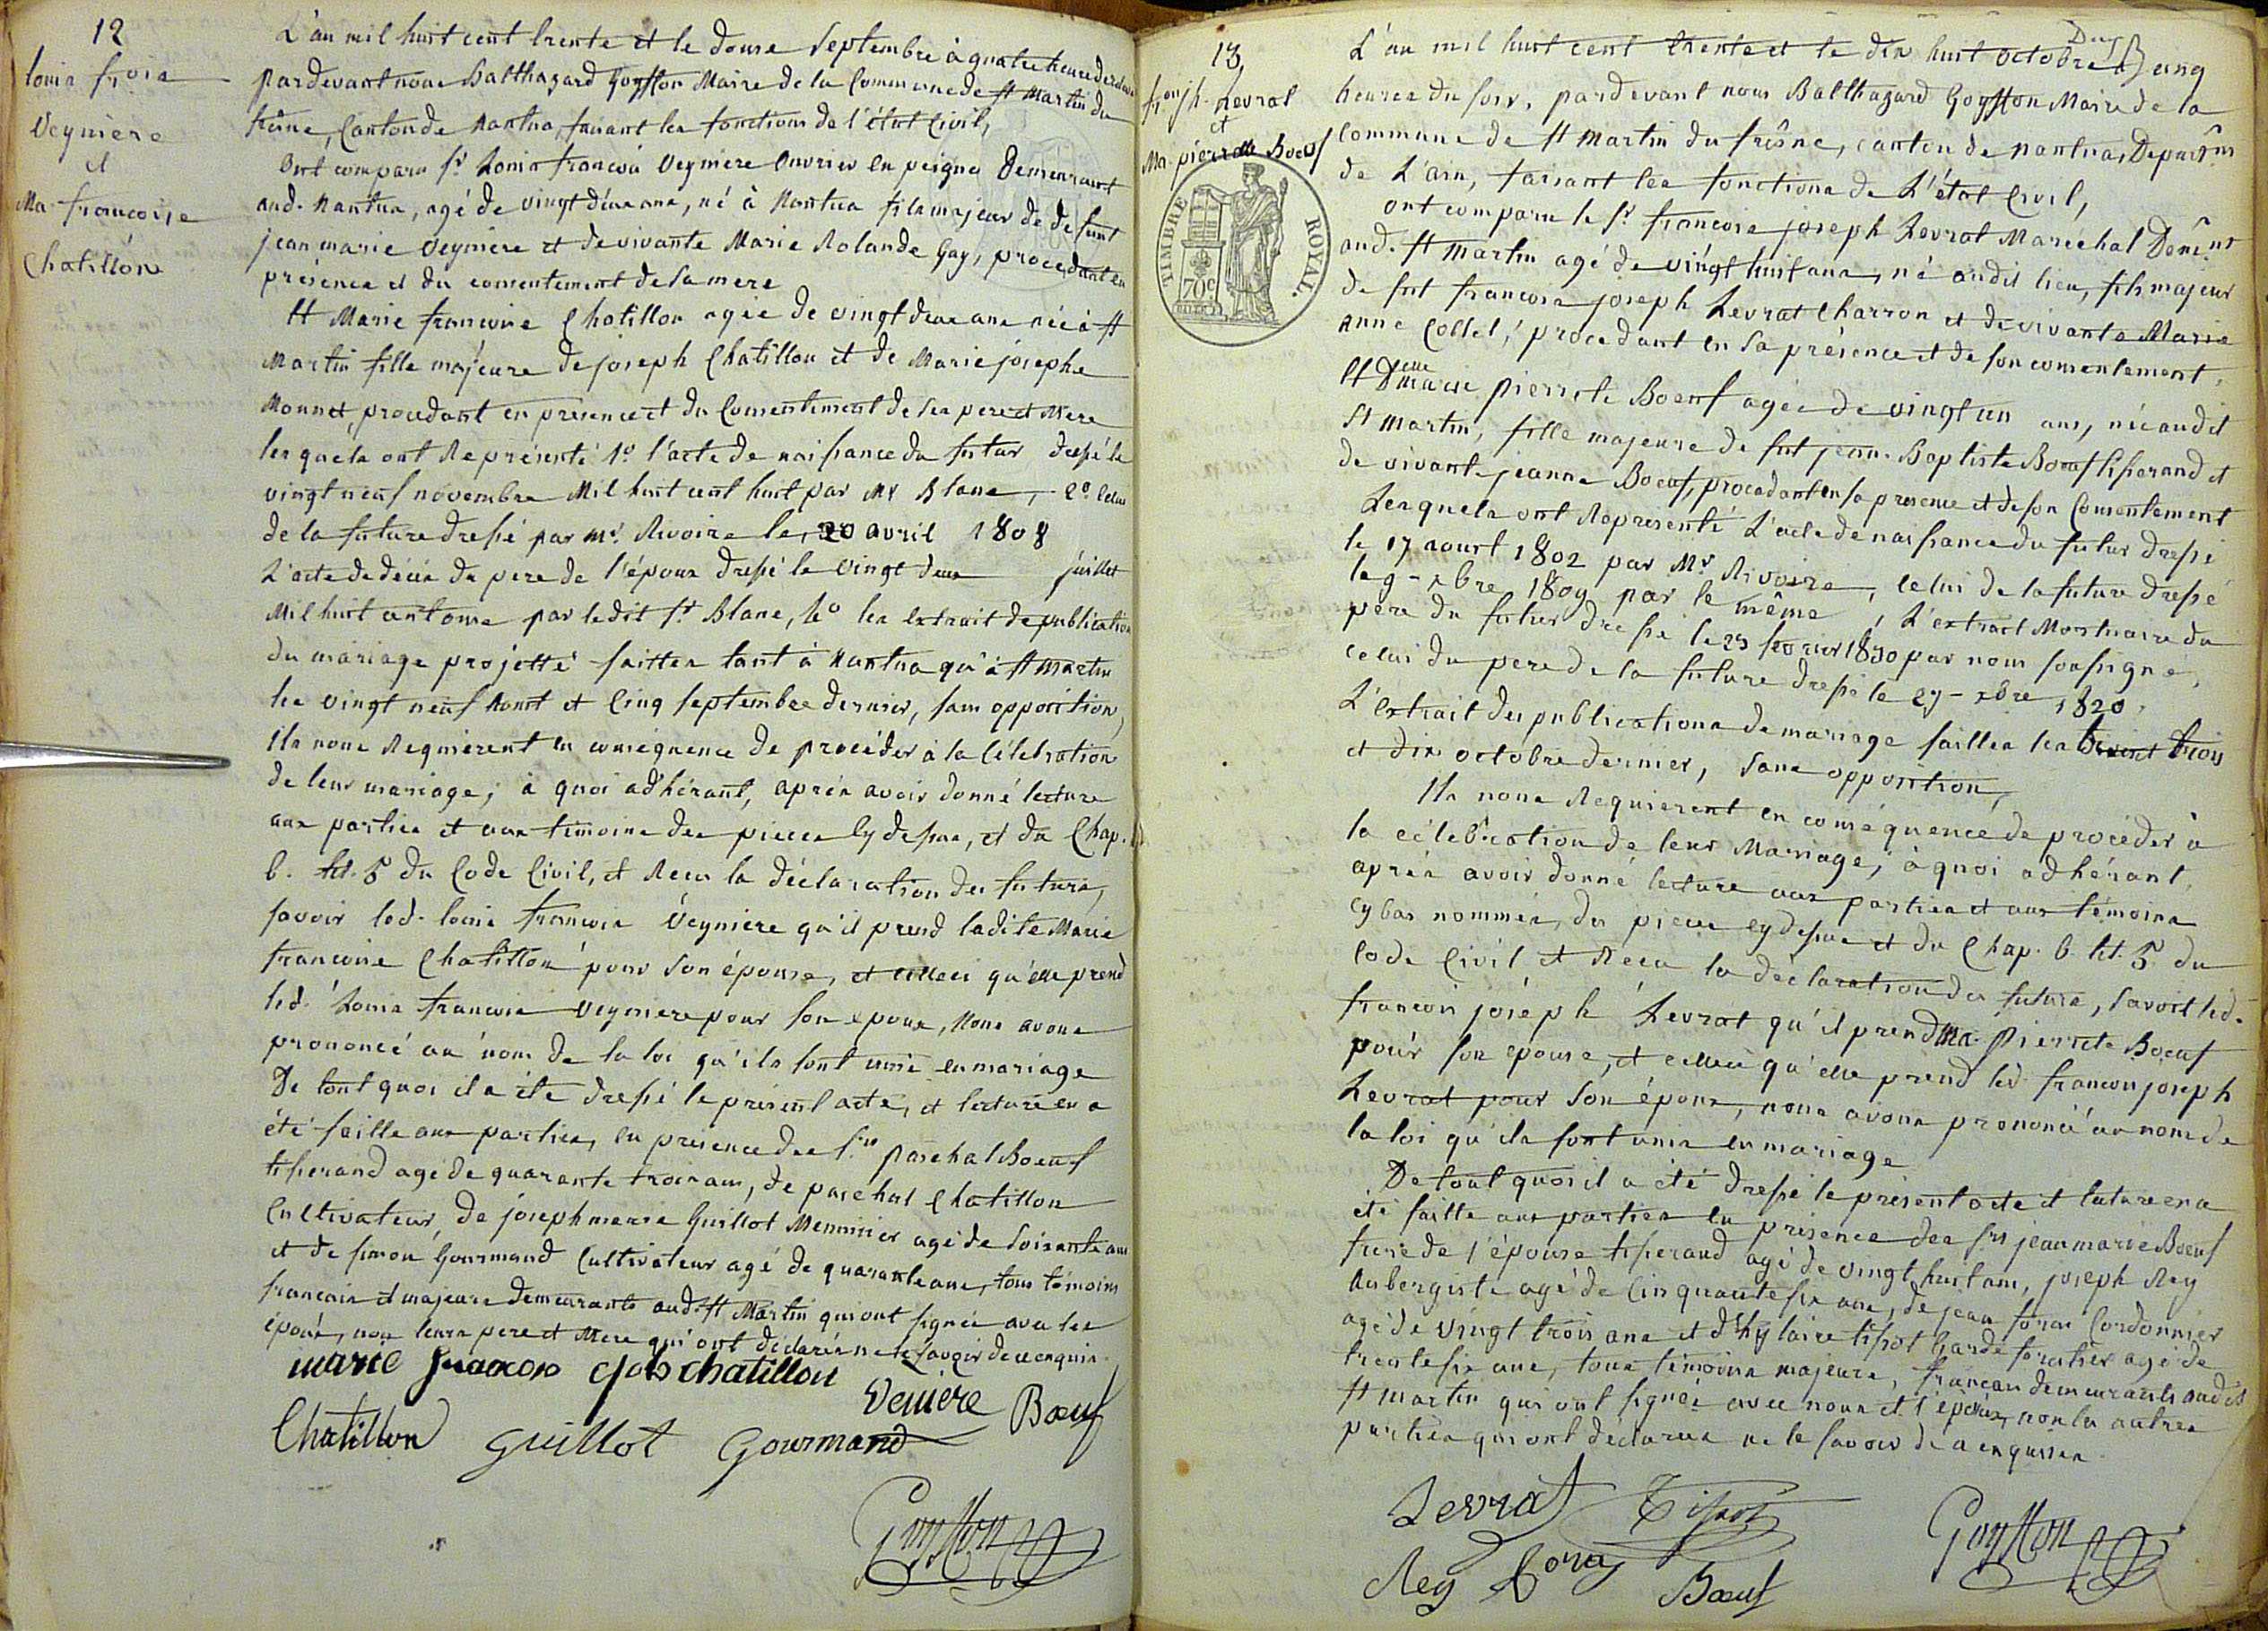 12
Louis frois
Veyniere
et
Ma. francoise
Chatillon
L'an mil huit cent trente et le douse Septembre à quatre heure du
pardevant nous Balthazard Goyffon Maire de la Commune de St Martin du
frêne, Canton de Nantua, faisant les fonctions de l'état Civil,
Ont comparu Sr Louis francois Veyniere Ouvrier en peignes Demeurant
aud. Nantua, agé de vingt deux ans, né à Nantua fils majeur de defunt
jean marie Veyniere et de vivante Marie Rolande Gay, procedant en
présence et du consentement de sa mere
Et Marie francoise Chatillon agée de vingt deux ans née à St
Martin fille majeure de joseph Chatillon et de Marie josephe
Monnet, procedant en presence et du Consentement de ses pere et Mere
lesquels ont Représenté 1º l'acte de naissance du futur dressé le
vingt neuf novembre Mil huit cent huit par Mr Blanc, 2º Celui
de la future dressé par mr. Rivoire le 20 avril 1808
L'acte de décès du pere de l'époux dressé le vingt deux juillet
Mil huit cent onse par ledit Sr Blanc, 4º les extrait de publication
du mariage projetté faittes tant à Nantua qu'à St Martin
les vingt neuf Aout et Cinq septembre dernier, sans opposition,
Ils nous Requierent en conséquence de procéder à la Célébration
de leur mariage; à quoi adhérant, après avoir donné lecture
aux parties et aux témoins des pieces cy dessus, et du Chap.
6. tit. 5 du Code Civil, et Recu la déclaration des futurs,
savoir led. louis francois Veyniere qu'il prend ladite Marie
francoise Chatillon pour son épouse, et celleci qu'elle prend
led. Louis francois Veyniere pour son epoux, Nous avons
prononcé au nom de la loi qu'ils sont unis en mariage
De tout quoi il a été dressé le présent acte, et lecture en a
été faitte aux parties, en presence des Srs paschal Boeuf
tisserand agé de quarante trois ans, de paschal Chatillon
Cultivateur, de joseph marie Guillot Menuisier agé de soixante ans
et de simon Gourmand Cultivateur agé de quarante ans, tous témoins
francais et majeurs demeurants aud. St Martin qui ont signés avec les
époux, non leurs pere et Mere qui ont déclarés ne le savoir de ce enquis.
marie francois chatillon
Veniere Bœuf
Chatillon Guillot Gourmand
Goyffon
13
frois jh. Levrat
et
Ma. pierrette Boeuf
TIMBRE ROYAL.
70c
L'an mil huit cent trente et le dix huit octobre à cinq
heures du soir, pardevant nous Balthazard Goyffon Maire de la
Commune de St Martin du frêne, canton de nantua, Departemt
de L'ain, faisant les fonctions de L'état Civil,
ont comparu le Sr francois joseph Levrat Maréchal Demt
aud. St Martin agé de vingt huit ans, né audit lieu, fils majeur
de fut francois joseph Levrat Charron et de vivante Marie
Anne Collet, procedant en sa présence et de son consentement,
Et Delle marie pierrete Boeuf agée de vingt un ans, née audit
St Martin, fille majeure de fut jean. Baptiste Boeuf tisserand et
de vivante jeanne Boeuf, procedant en sa presence et de son Consentement
Lesquels ont Représenté L'acte de naissance du futur dressé
le 17 aout 1802 par Mr Rivoire, celui de la future dressé
le 9 - xbre 1809 par le même, L'extrait Mortuaire du
père du futur dressé le 23 fevrier 1830 par nous soussigné,
celui du pere de la future dressé le 27 - xbre 1820.
L'extrait des publications de mariage faittes les trois
et dix octobre dernier, sans opposition,
Ils nous Requierent en conséquence de procéder à
la célébration de leur Mariage; à quoi adhérant,
après avoir donné lecture aux parties et aux témoins
cy bas nommés, des pieces cy dessus et du Chap. 6. tit. 5. du
Code Civil et Recu la déclaration des futurs, savoir led.
francois joseph Levrat qu'il prend Ma. Pierrete Boeuf
pour son epouse, et celleci qu'elle prend led. francois joseph
Levrat pour son époux, nous avons prononcé au nom de
la loi qu'ils sont unis en mariage
De tout quoi il a été dressé le présent acte et lecture en a
été faitte aux parties en présence des Srs jean marie Boeuf
frere de l'épouse tisserand agé de vingt huit ans, joseph Rey
Aubergiste agé de Cinquante six ans, de jean foras Cordonnier
agé de vingt trois ans et d'hylaire tissot Garde forestier agé de
trente six ans, tous témoins majeurs, francais demeurants audit
St Martin qui ont signés avec nous et l'époux, non les autres
parties qui ont déclarées ne le savoir de ce enquises.
Levrat Tissot
Goyffon
Rey foras Bœuf